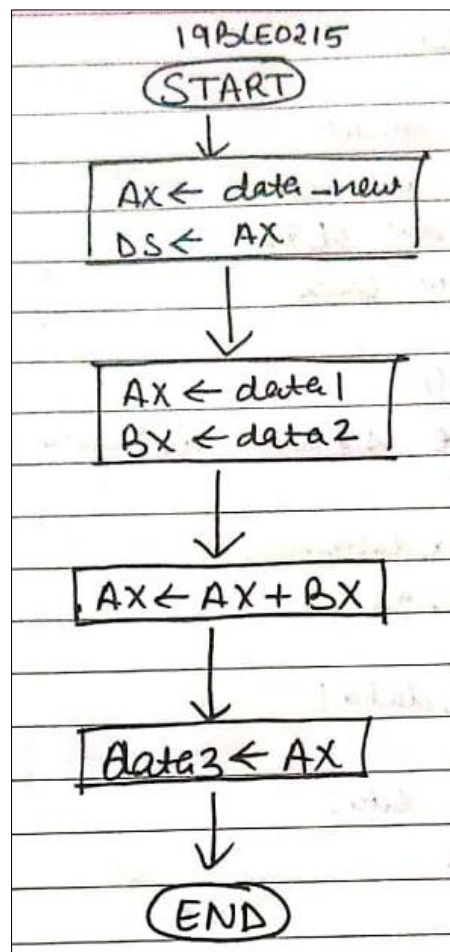 19BLE0215
START
AX ← data_new
DS ← AX
AX ← data1
BX ← data2
AX ← AX + BX
data3 ← AX
END